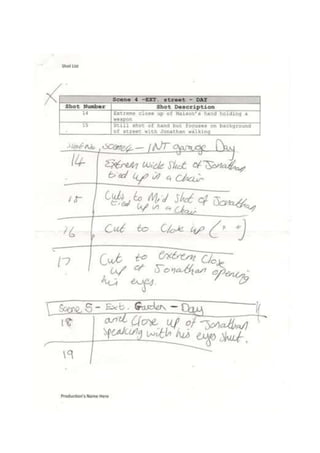 Shot List
Scene 4 -EXT. street - DAY
Shot Number Shot Description
14 Extreme close up of Maison's hand holding a
weapon
15 Still shot of hand but focuses on background
of street with Jonathan walking
Shot No, Scene 4 - INT garage Day
14 Extreme wide shot of Jonathan
tied up in a chair
15 Cuts to Mid shot of Jonathan
tied up in a chair
16 Cut to Close up (" ")
17 Cut to extrem close
up of Jonathan opening
his eyes.
Scene 5 - Ext. Garden - Day
18 and close up of Jonathan
speaking with his eyes shut.
19
Production's Name Here